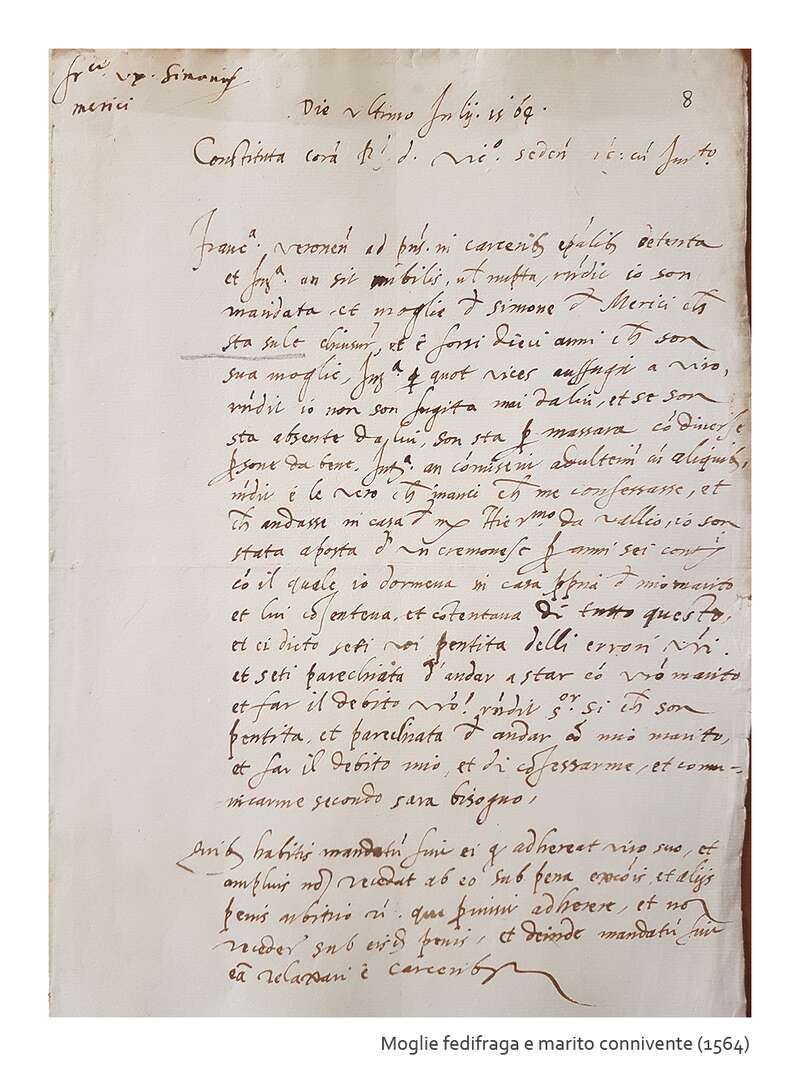 fr.ca ux. Simonis
merici
8
Die ultimo Julij. 1564.
Constituta corā R. d. Vic.o sedeñ
Franc.a veronen̄ ad pñs. in carcerib. ep̄alib. detenta
et Int.a an sit nubilis, ul nupta, rn̄dit io son
mandata et moglie d Simone d Merici ch
sta sule chiusur, et è forsi dieci anni ch son
sua moglie, Int.a quot vices auffugit a viro,
rn̄dit io non son fugita mai da lui, et se son
sta absente da lui, son sta p massara cō diverse
psone da bene. Int.a an cōmiserit adulteriū cū aliquib.
rn̄dit è le vero ch inanci ch me confessasse, et
ch andasse in casa d m. Hier.mo da vallio, io son
stata aposta d un cremonese p anni sei
cō il quale io dormeva in casa ppria d mio marito
et lui cōsenteva, et cōtentava di tutto questo,
et ei dicto seti voi pentita delli errori vr̄i
et seti parechiata d'andar a star cō vr̄o marito
et far il debito vr̄o, rn̄dit s.or si ch son
pentita, et parechiata d andar cō mio marito,
et far il debito mio, et di cōfessarme, et comu-
nicarme secondo sara bisogno,
Quib. habitis mandatū fuit ei q adhereat viro suo, et
amplius nō recedat ab eo sub pena excōis et alijs
penis arbitrio adherere, et non
recedere sub eisd penis, et deinde mandatū fuit
eā relaxari è carcerib.
Moglie fedifraga e marito connivente (1564)